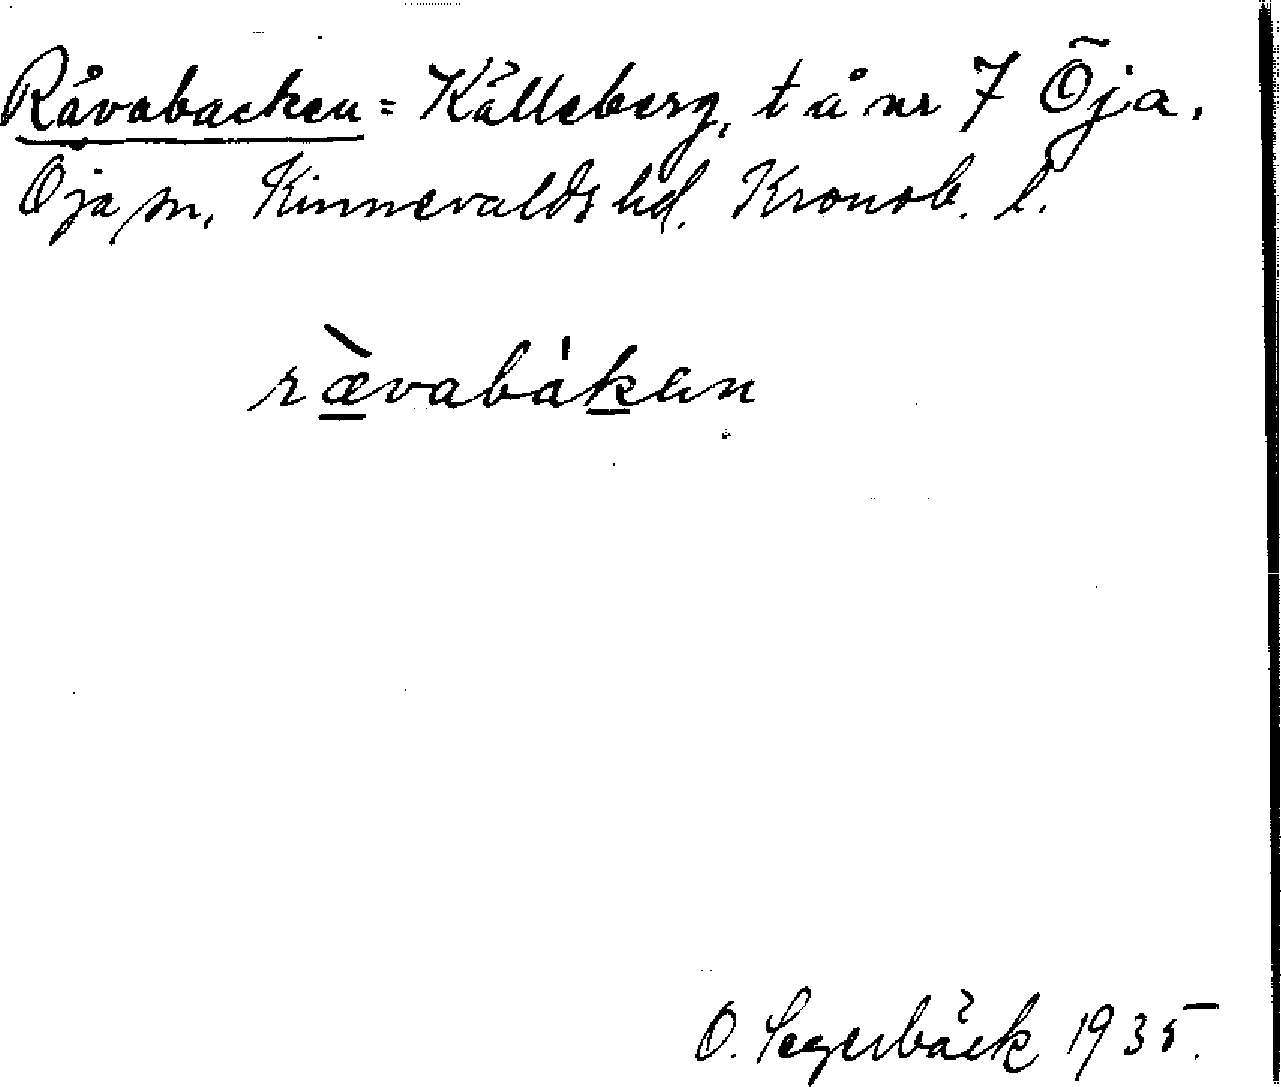 Råvabacken = Källeberg, t å nr 7 Öja.
Öja sn, Kinnevalds hd. Kronob. l.
ræ̀vabákan
O. Segerbäck 1935.